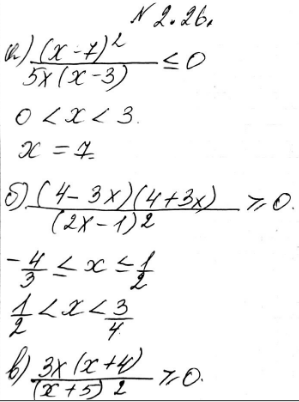 № 2.26.
а) (x-7)² / 5x(x-3) ≤ 0
0 < x < 3.
x = 7.
б) (4-3x)(4+3x) / (2x-1)2 ≥ 0.
-4/3 ≤ x ≤ 1/2
1/2 < x < 3/4.
в) 3x(x+4) / (x+5)2 ≥ 0.